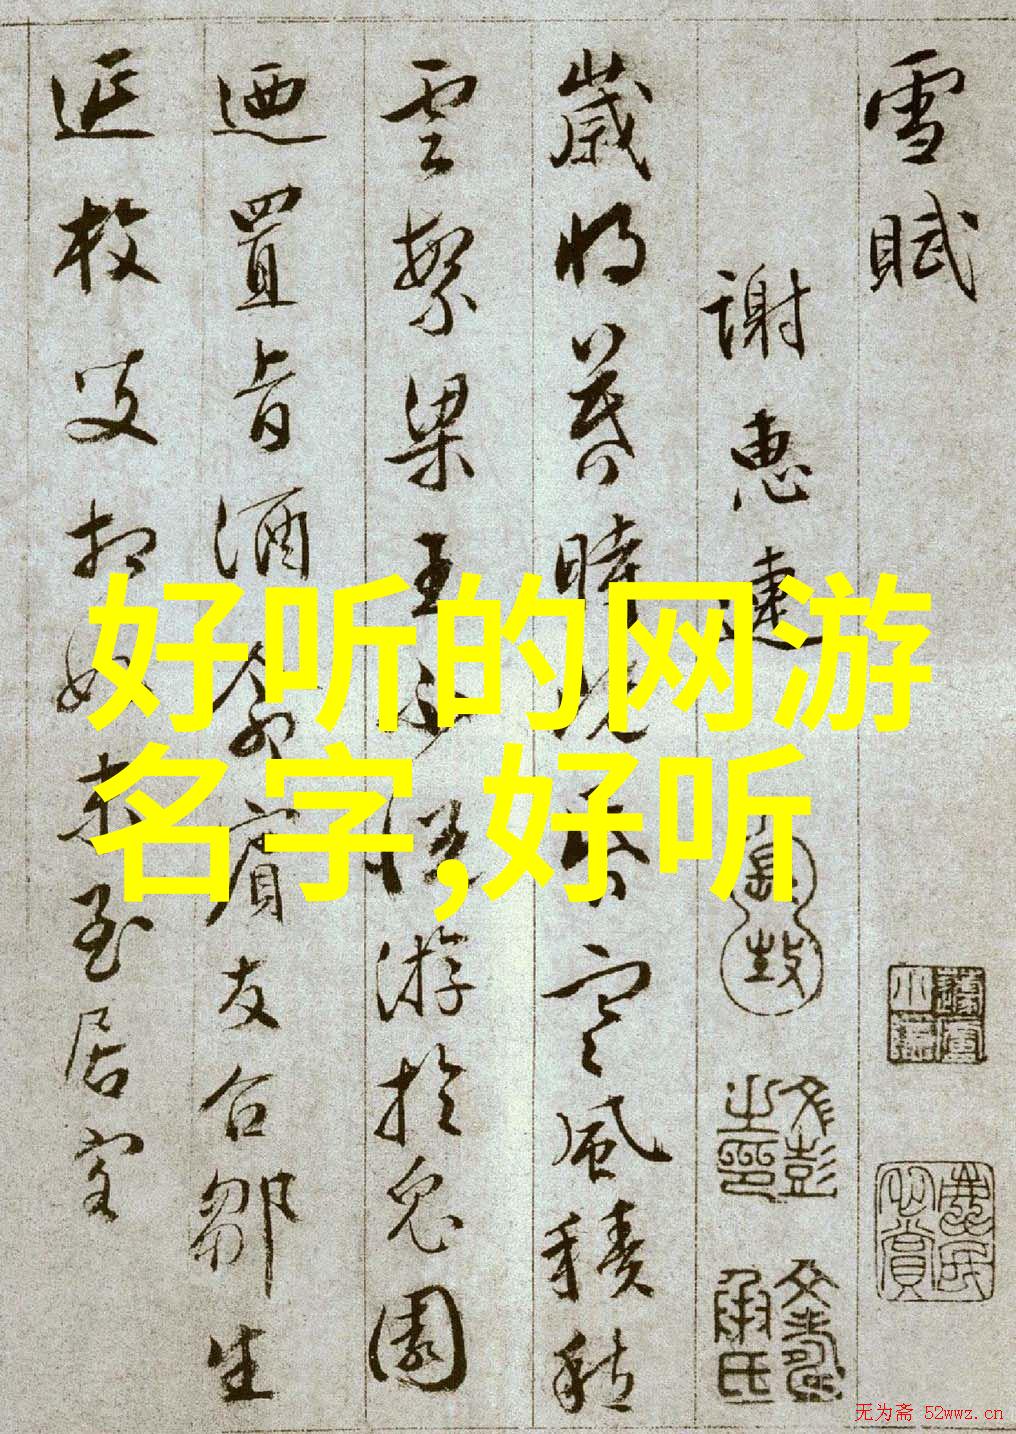 雪賦
謝惠連
歲將暮時既昏寒風積愁
雲繁梁王不悅游於兔園
迺置旨酒命賓友召鄒生
延枚叟相如末至居客
好听的网游
名字,好听
无为斋 52wwz.cn